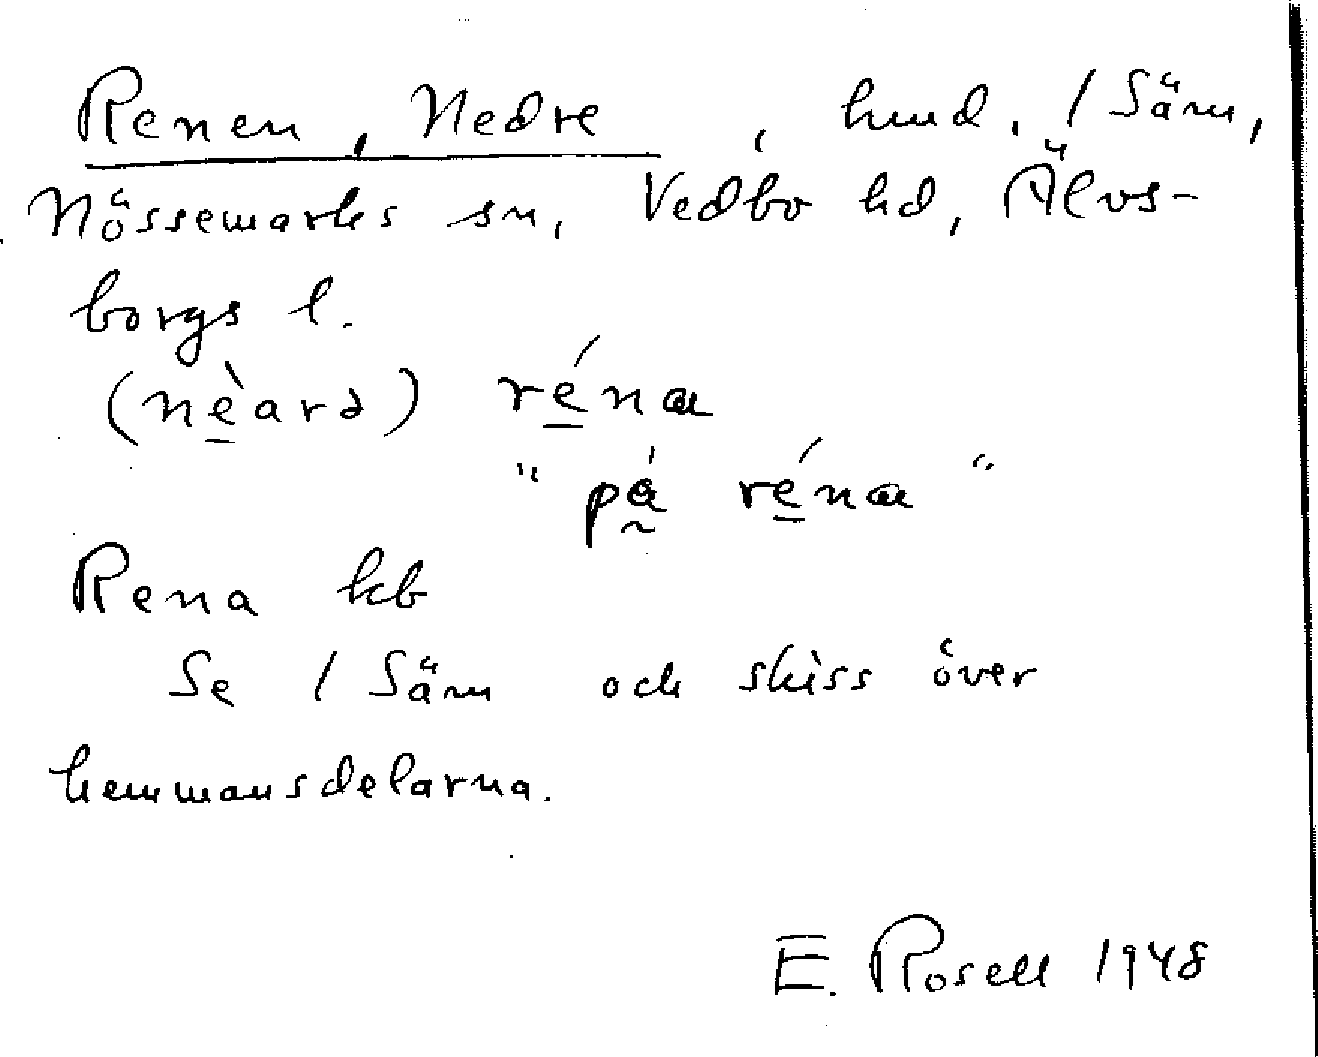 Renen, Nedre, hmd. 1 Säm,
Nössemarks sn, Vedbo hd, Älvs-
borgs l.
(nèarə) rénæ
" på rénæ "
Rena kb
Se 1 Säm och skiss över
hemmansdelarna.
E. Rosell 1948